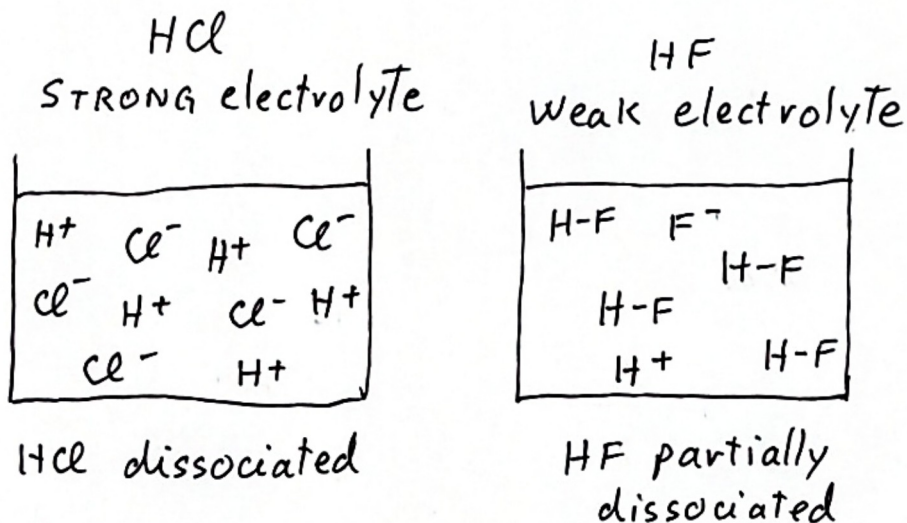 HCl
STRONG electrolyte
H+ Cl- H+ Cl-
Cl- H+ Cl- H+
Cl- H+
HCl dissociated
HF
Weak electrolyte
H-F F-
H-F
H-F
H+ H-F
HF partially
dissociated